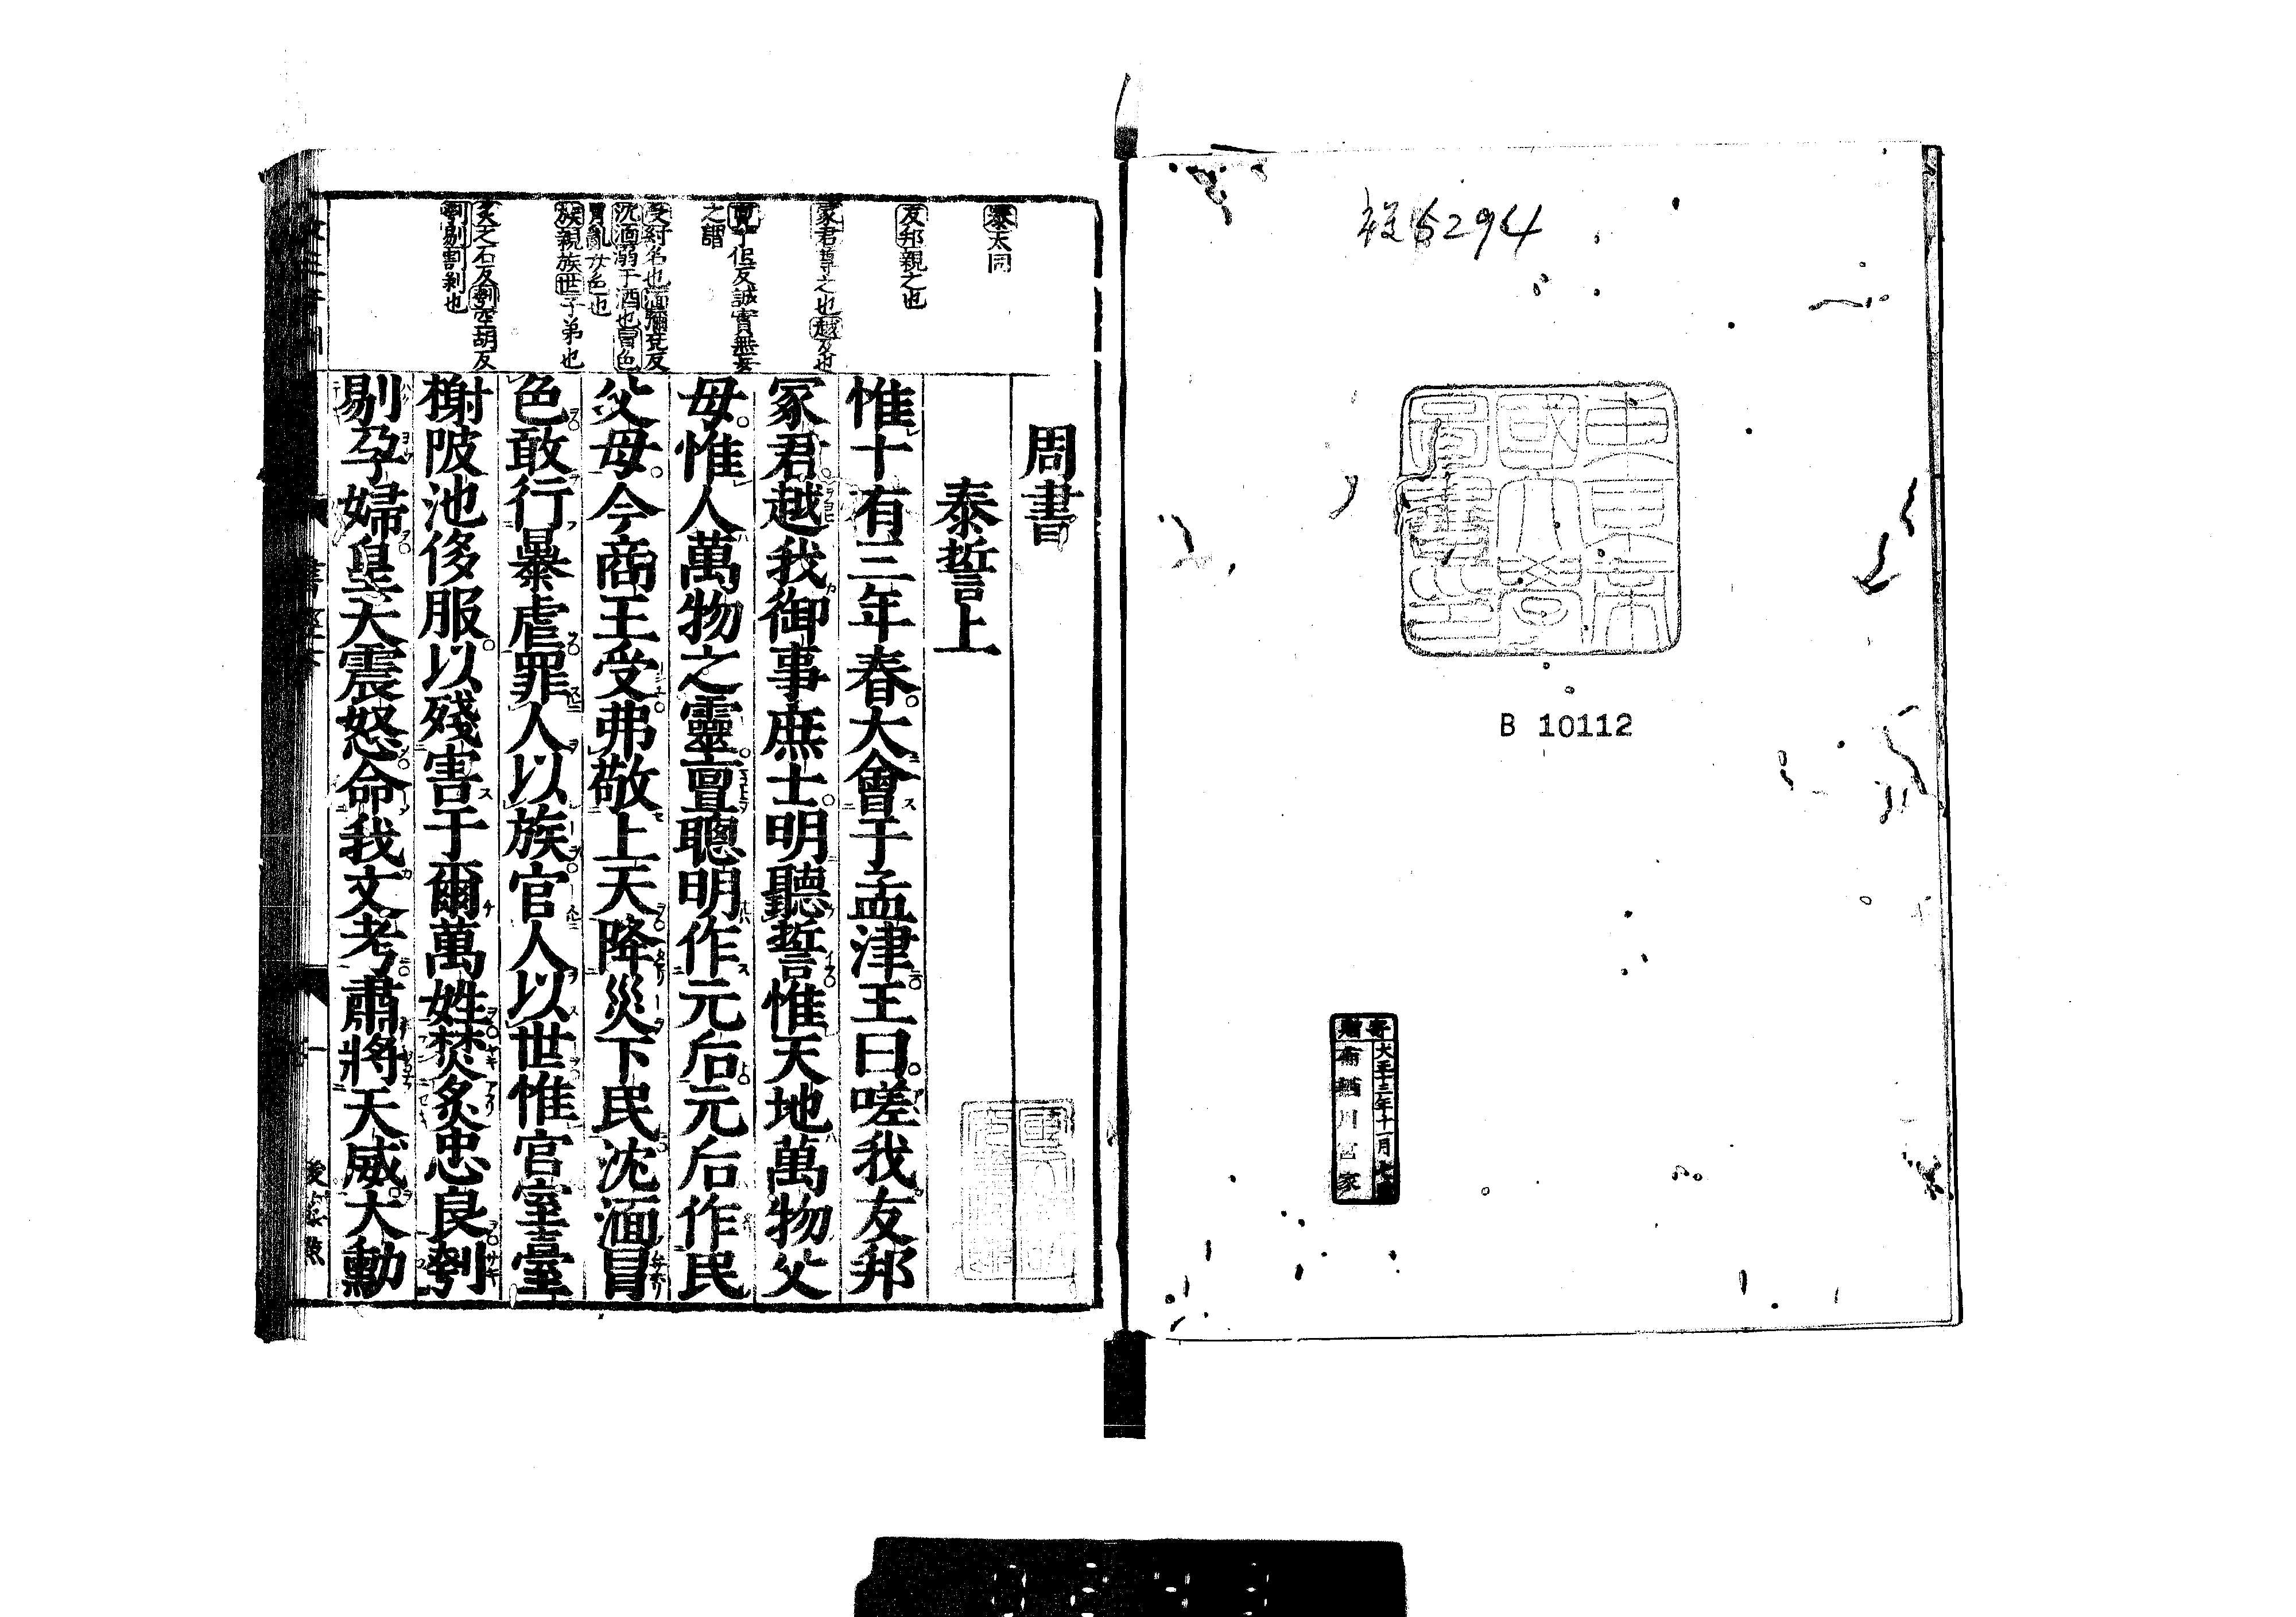 複5294
東京帝
國大學
圖書之
印
B 10112
寄贈
大正十三年十一月
南葵川宮家
泰太同
友邦親之也
冢君尊之也越及也
亶丁但反誠實無妄
之謂
受紂名也湎彌兗反
沈湎溺于酒也冒色
冒亂女色也
族親族世子弟也
炙之石反刳空胡反
刳剔割剥也
周書
泰誓上
惟十有三年春大會于孟津王曰嗟我友邦
冢君越我御事庶士明聽誓惟天地萬物父
母惟人萬物之靈亶聰明作元后元后作民
父母今商王受弗敬上天降災下民沈湎冒
色敢行暴虐罪人以族官人以世惟宮室臺
榭陂池侈服以殘害于爾萬姓焚炙忠良刳
剔孕婦皇天震怒命我文考肅將天威大勳
後藤點